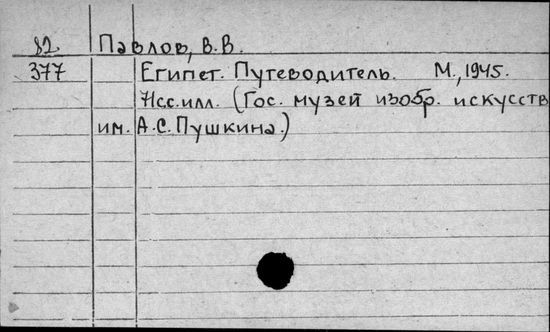 82 Павлов, В.В.
377 Египет. Путеводитель. М., 1945.
71сс. илл. (Гос. музей изобр. искусств
им. А.С. Пушкина.)